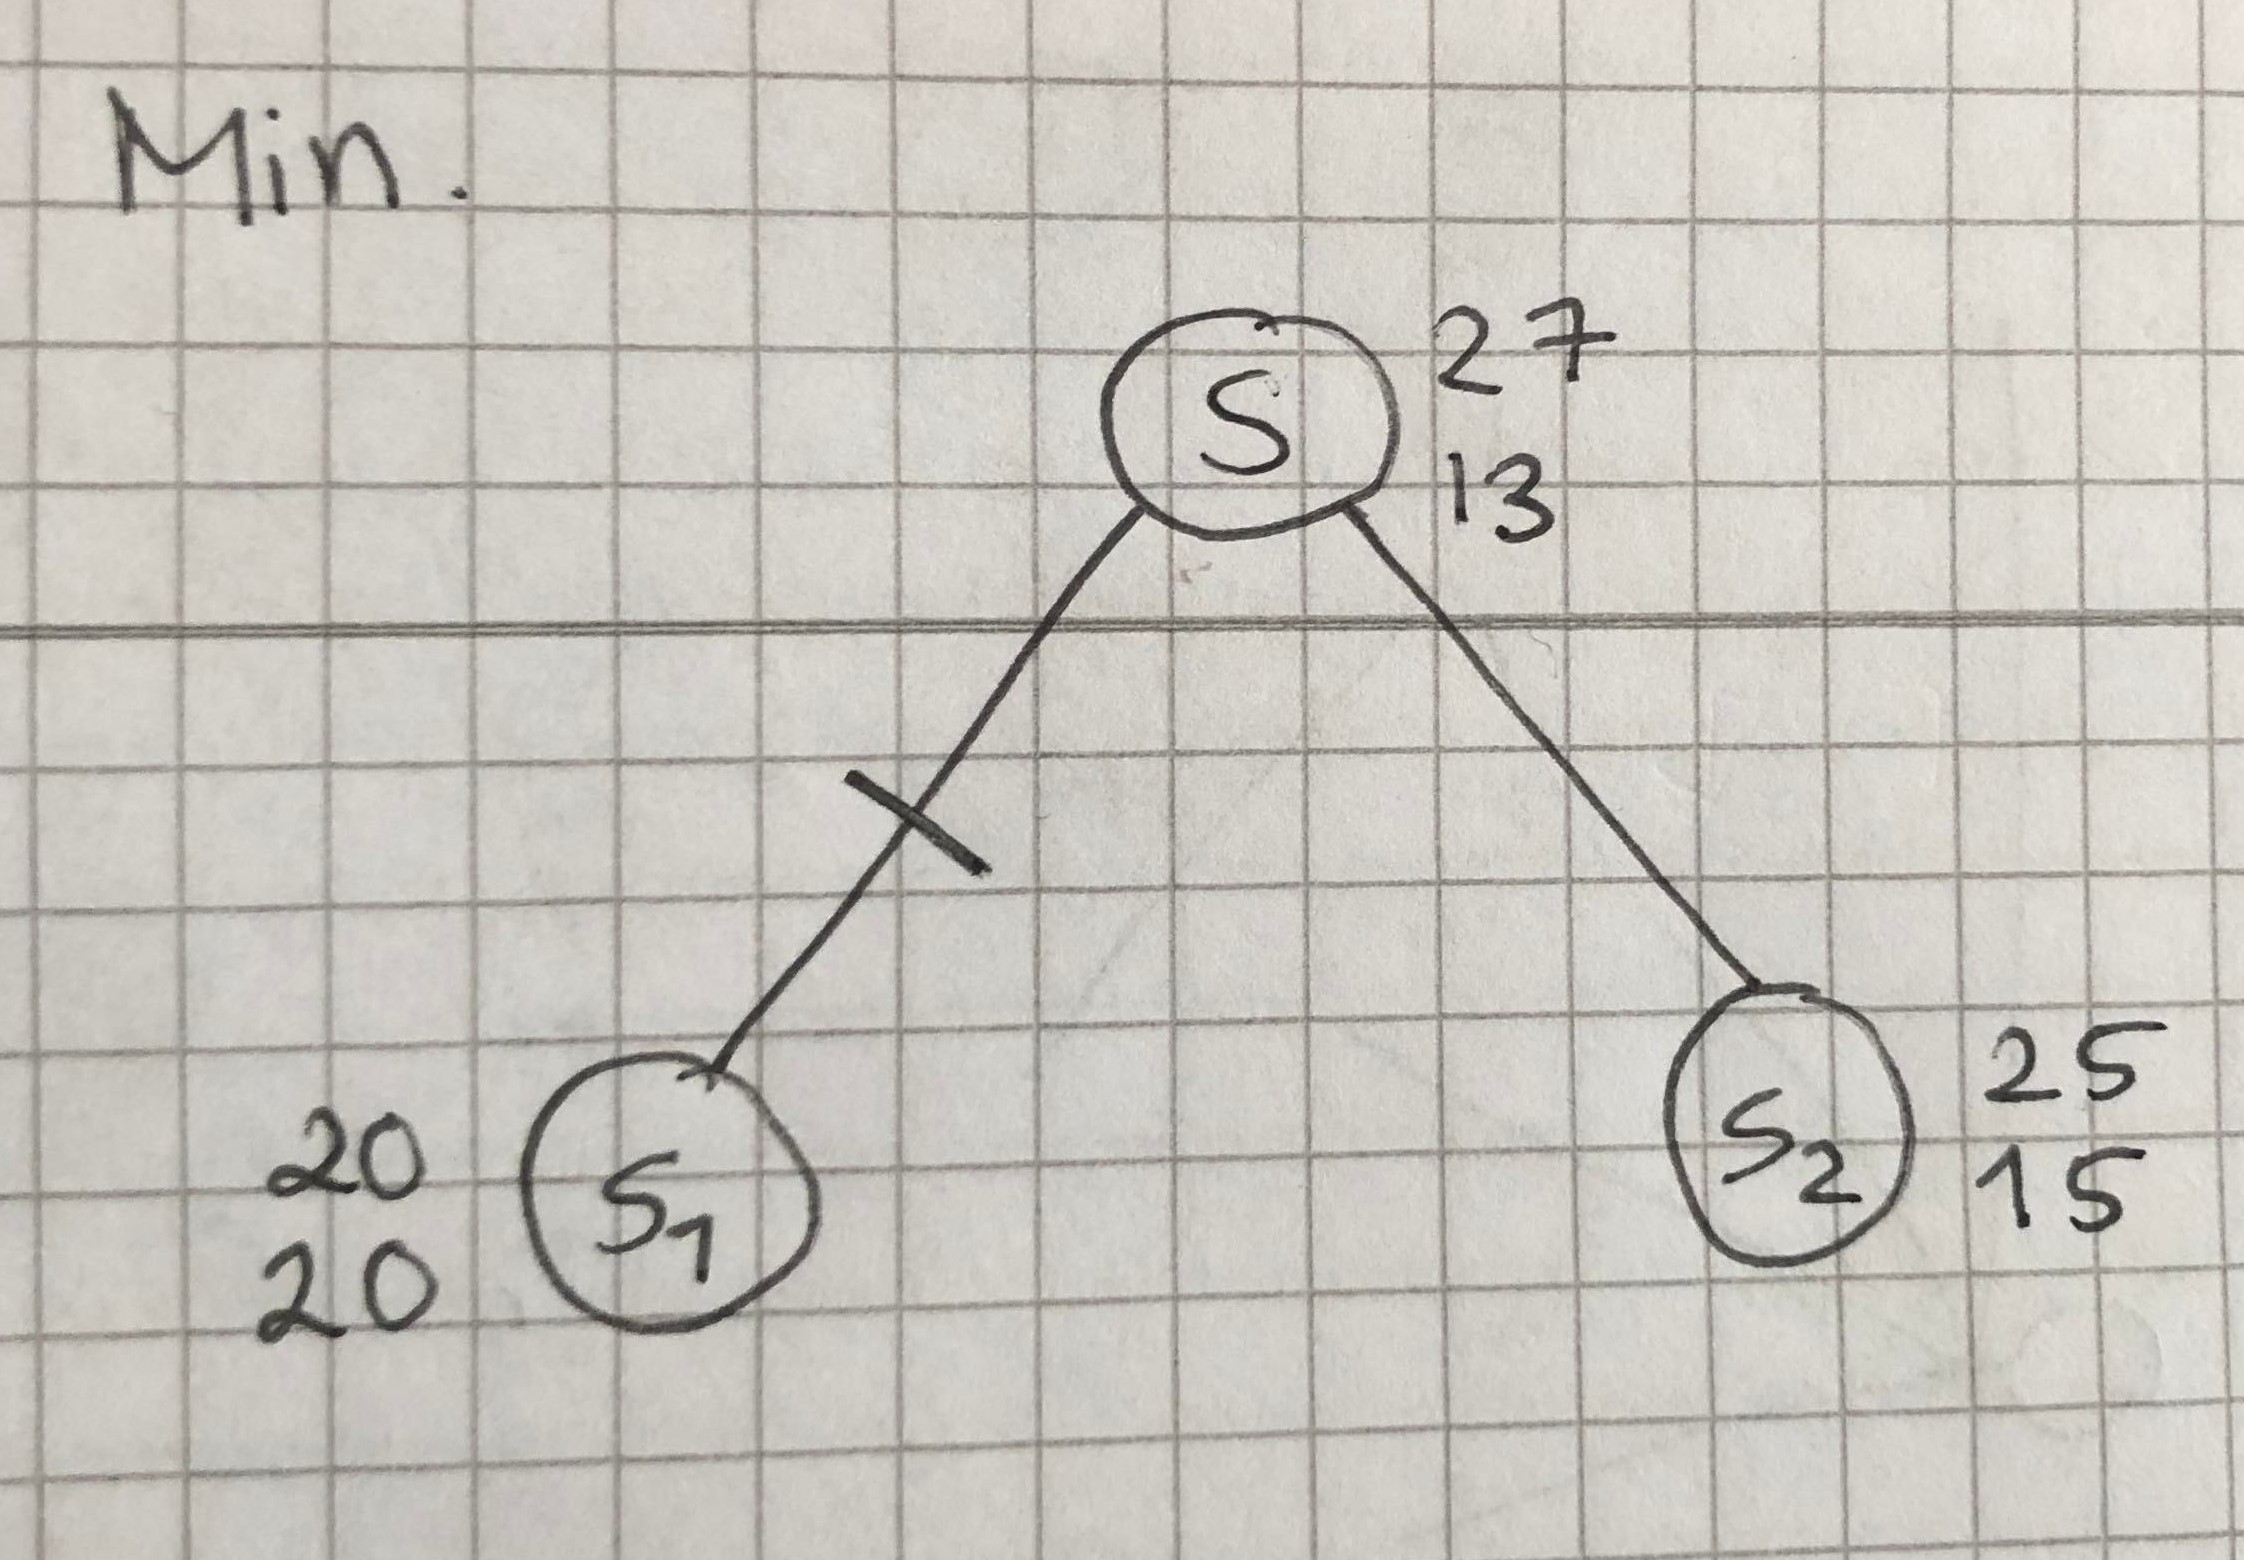 Min.
S
27
13
20
20
S1
S2
25
15